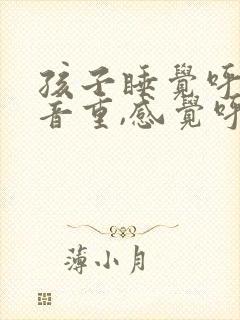 孩子睡覺呼
音重,感覺呼
薄小月